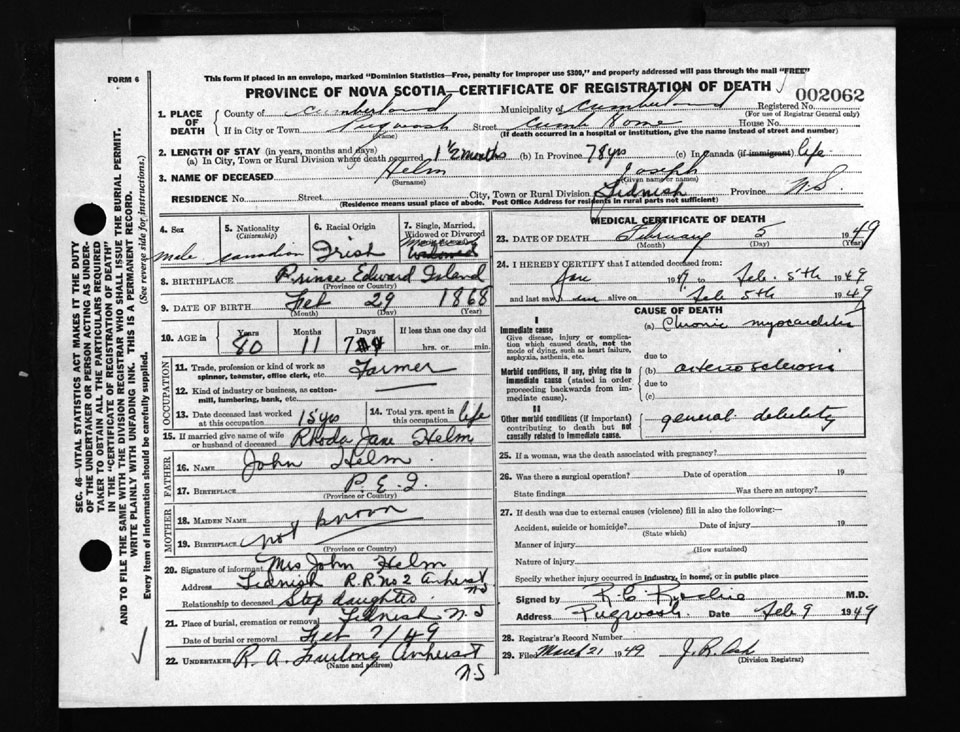 FORM 6
This form if placed in an envelope, marked "Dominion Statistics—Free, penalty for improper use $300," and properly addressed will pass through the mail "FREE"
PROVINCE OF NOVA SCOTIA—CERTIFICATE OF REGISTRATION OF DEATH
002062
1. PLACE OF DEATH
County of Cumberland Municipality of Cumberland Registered No.
(For use of Registrar General only)
If in City or Town Pugwash Street Cumb Home House No.
(Name) (If death occurred in a hospital or institution, give the name instead of street and number)
2. LENGTH OF STAY (in years, months and days)
(a) In City, Town or Rural Division where death occurred 1 1/2 months (b) In Province 78 yrs (c) In Canada (if immigrant) life
3. NAME OF DECEASED Helm Joseph
(Surname) (Given name or names)
RESIDENCE No. Street City, Town or Rural Division Tidnish Province N.S.
(Residence means usual place of abode. Post Office Address for residents in rural parts not sufficient)
4. Sex male
5. Nationality (Citizenship) Canadian
6. Racial Origin Irish
7. Single, Married, Widowed or Divorced
8. BIRTHPLACE Prince Edward Island
(Province or Country)
9. DATE OF BIRTH Feb 29 1868
(Month) (Day) (Year)
10. AGE in Years Months Days If less than one day old
80 11 7 hrs. or min.
OCCUPATION
11. Trade, profession or kind of work as spinner, teamster, office clerk, etc. Farmer
12. Kind of industry or business, as cotton-mill, lumbering, bank, etc.
13. Date deceased last worked at this occupation 15 yrs
14. Total yrs. spent in this occupation life
15. If married give name of wife or husband of deceased Rhoda Jane Helm
FATHER
16. NAME John Helm
17. BIRTHPLACE P.E.I.
(Province or Country)
MOTHER
18. MAIDEN NAME
19. BIRTHPLACE not known
(Province or Country)
20. Signature of informant Mrs John Helm
Address Tidnish R.R. No 2 Amherst NS
Relationship to deceased Step daughter
21. Place of burial, cremation or removal Tidnish N.S
Date of burial or removal Feb 7/49
22. UNDERTAKER R. A. Furlong Amherst N.S
(Name and address)
MEDICAL CERTIFICATE OF DEATH
23. DATE OF DEATH February 5 1949
(Month) (Day) (Year)
24. I HEREBY CERTIFY that I attended deceased from:
Jan 19 to Feb. 5th 1949
and last saw him alive on Feb 5th 1949
CAUSE OF DEATH
I
Immediate cause (a) Chronic myocarditis
Give disease, injury or complication which caused death, not the mode of dying, such as heart failure, asphyxia, asthenia, etc.
due to
Morbid conditions, if any, giving rise to immediate cause (stated in order proceeding backwards from immediate cause).
(b) arterio sclerosis
due to
(c)
II
Other morbid conditions (if important) contributing to death but not causally related to immediate cause.
general debility
25. If a woman, was the death associated with pregnancy?
26. Was there a surgical operation? Date of operation 19
State findings Was there an autopsy?
27. If death was due to external causes (violence) fill in also the following:—
Accident, suicide or homicide? Date of injury 19
(State which)
Manner of injury
(How sustained)
Nature of injury
Specify whether injury occurred in industry, in home, or in public place
Signed by R. C. M.D.
Address Pugwash Date Feb 9 1949
28. Registrar's Record Number
29. Filed March 21 1949 J. R.
(Division Registrar)
SEC. 46—VITAL STATISTICS ACT MAKES IT THE DUTY
OF THE UNDERTAKER OR PERSON ACTING AS UNDER-
TAKER TO OBTAIN ALL THE PARTICULARS REQUIRED
IN THE "CERTIFICATE OF REGISTRATION OF DEATH"
AND TO FILE THE SAME WITH THE DIVISION REGISTRAR WHO SHALL ISSUE THE BURIAL PERMIT.
WRITE PLAINLY WITH UNFADING INK. THIS IS A PERMANENT RECORD.
Every item of information should be carefully supplied. (See reverse side for instructions.)